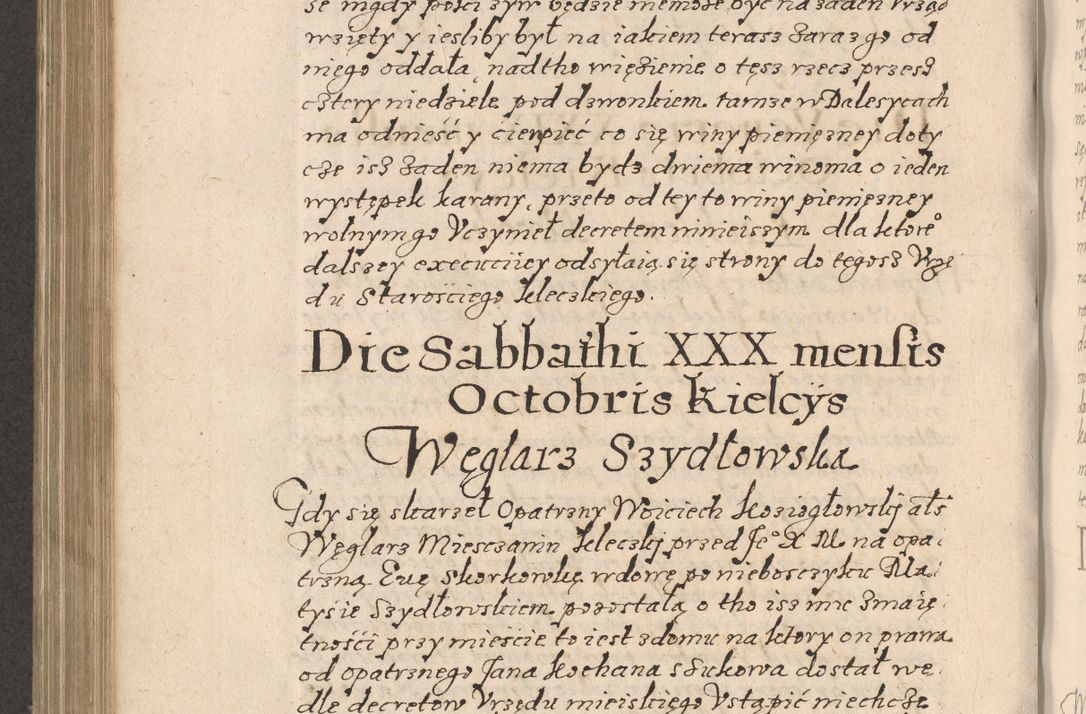 se nigdy pości zyw będzie niemoże być na żaden Vrząd
wzięty y iesliby był na iakiem terasz zaraz go od
niego oddała, nadtho więzienie o tęsz rzecz przesz
cztery niedziele pod dzwonkiem tamze w Dalesycach
ma odnieść y cierpieć co się winy pieniężney doty
cze isz żaden niema bydz dwiema winoma o ieden
występek karany, przeto od tey to winy pieniężney
wolnym go Vczynieł decretem ninieiszym dla ktore°
dalszey execuciiey odsyłaią się strony do tegosz Vrzę
du Starościego kleczkiego.
Die Sabbathi XXX mensis
Octobris Kielcÿs
Węglarz Szydłowska
Gdy się skarzeł Opatrzny Woiciech Koziogłowskj ałs
Węglarz Miesczanin kleczkj przed Je° X M na opa:
trzną Ewę Skorkowkę wdowę po nieboszczyku Ma:
tysie Szydłowskiem pozostałą o tho isz mu zmaię:
tności przy mieście to iest z domu na ktory on prawa
od opatrznego Jana Kochana s Sukowa dostał we
dle decretow Vrzędu mieiskiego Vstąpić niechcze